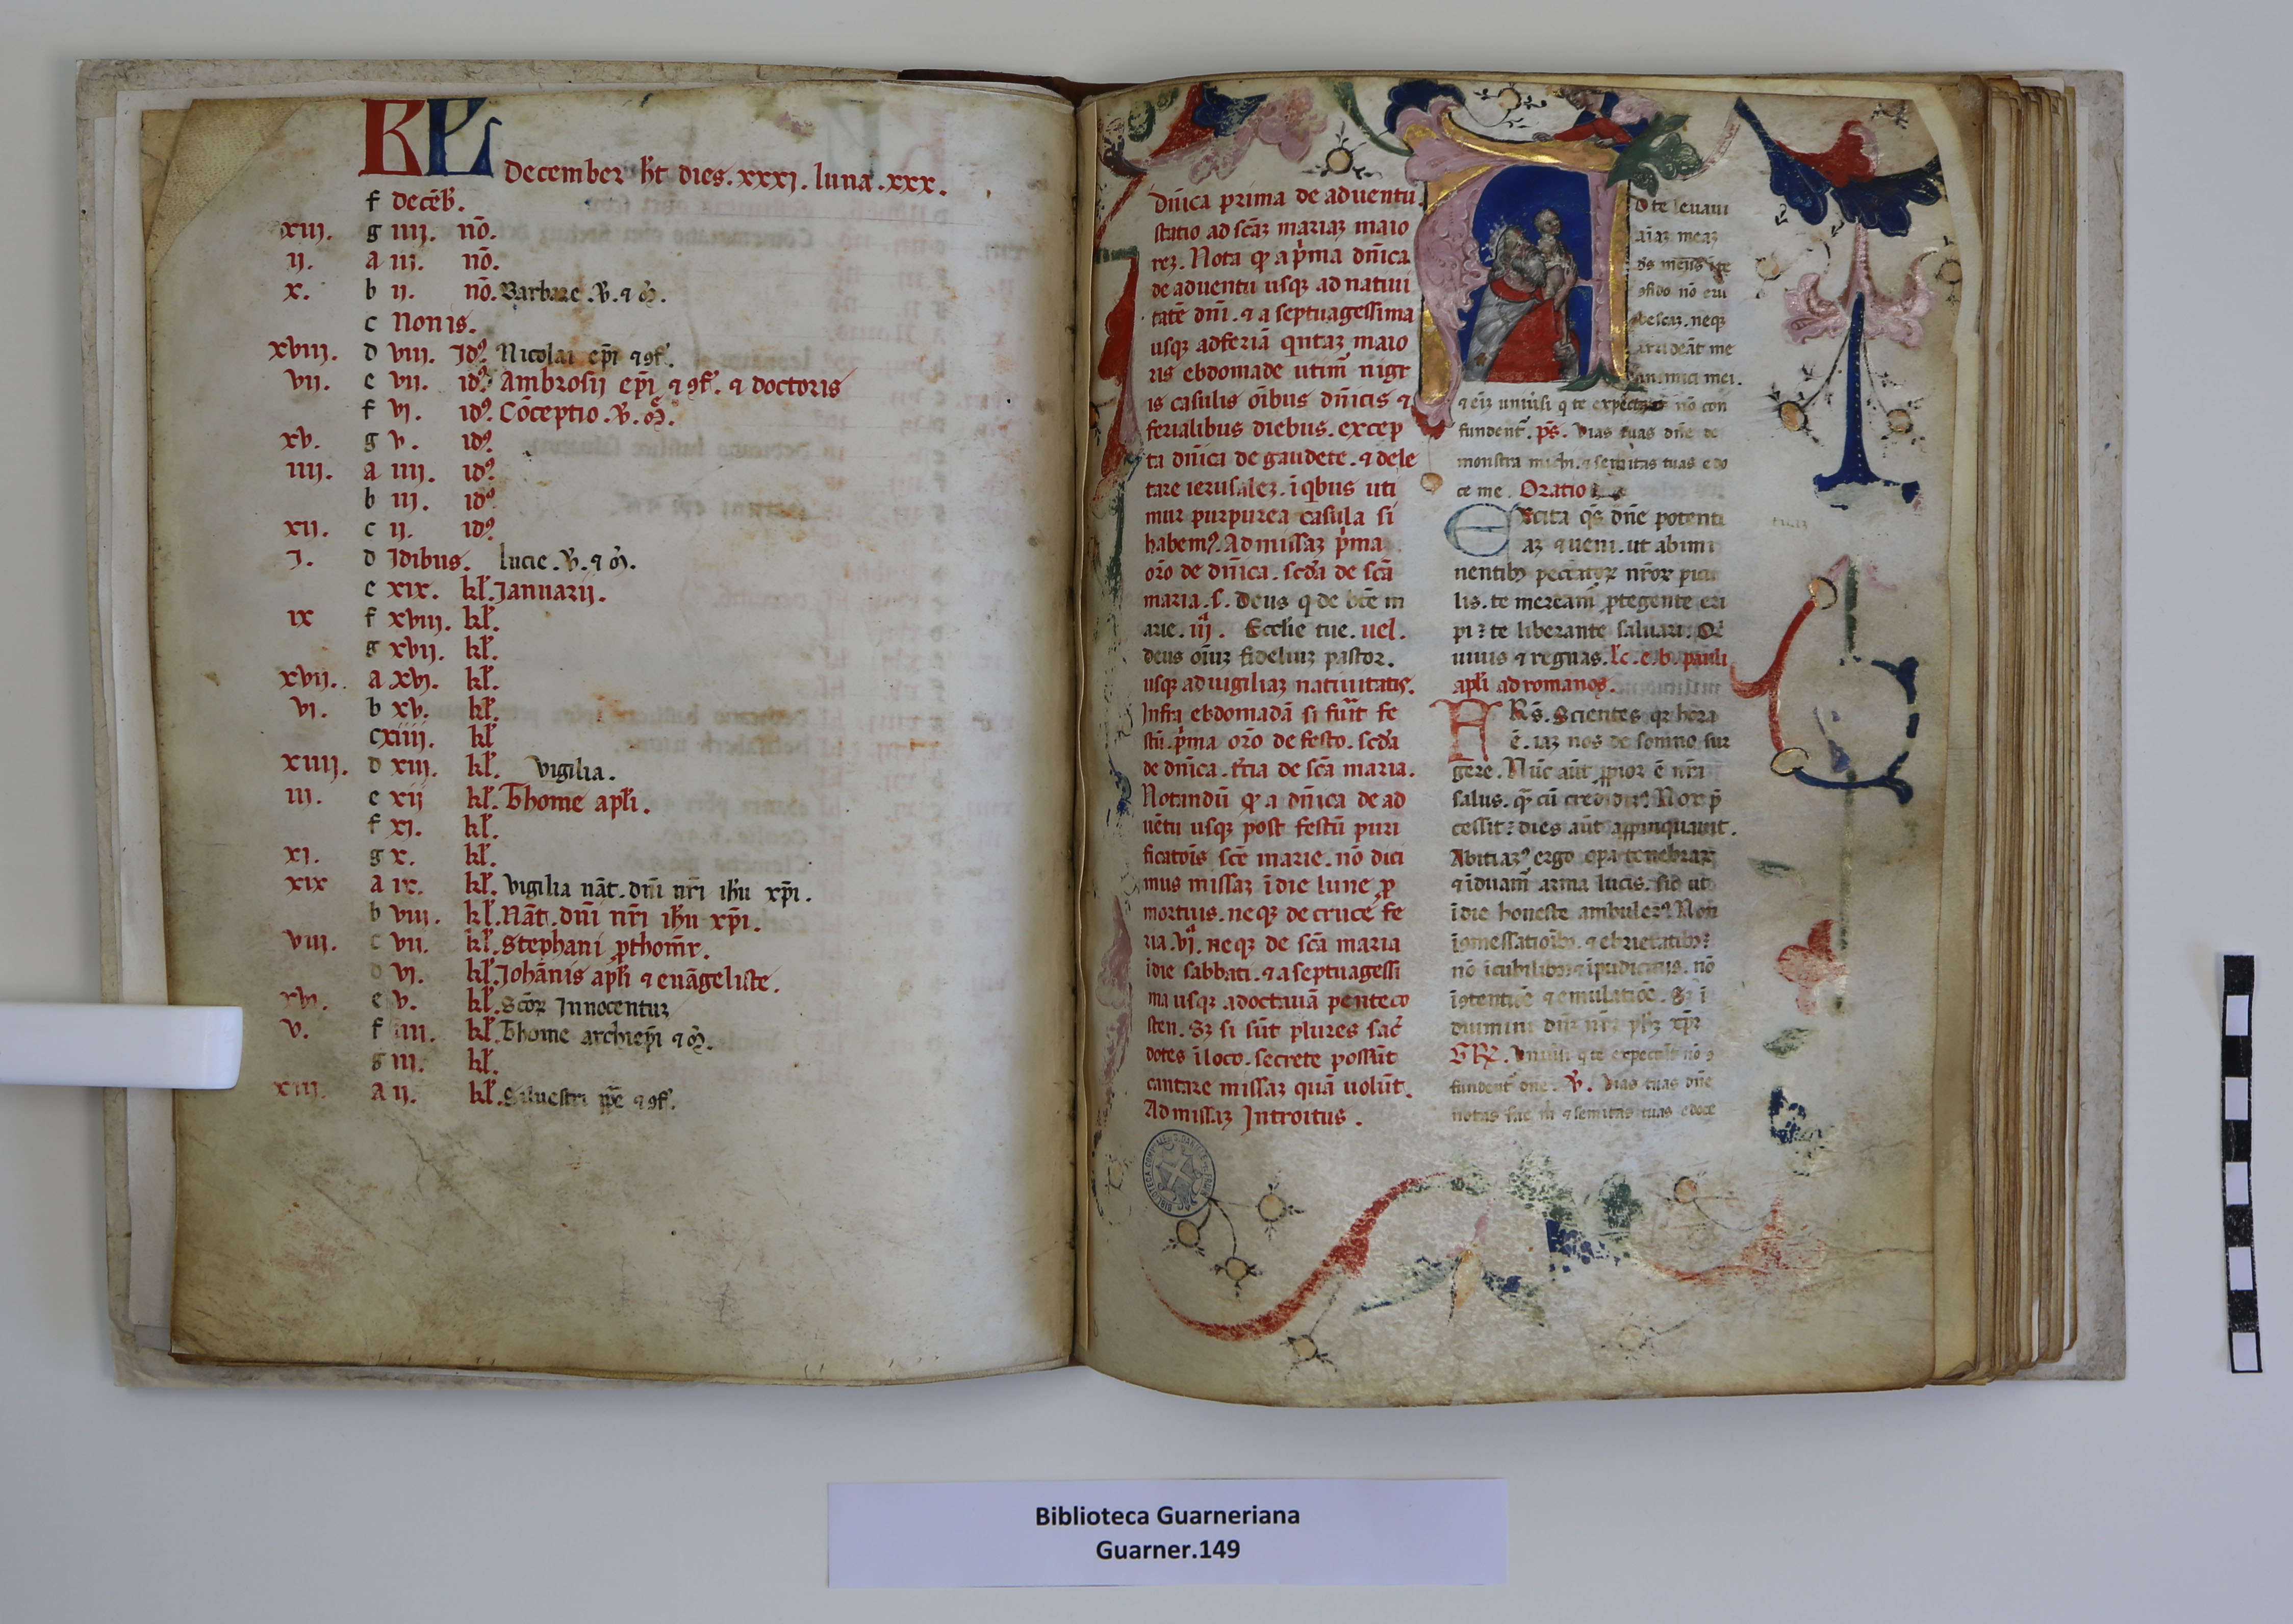 KL
December h̄t dies.xxxj.luna.xxx.
f decēb̄.
xiij. g iiij. nō.
ij. a iij. nō.
x. b ij. nō. Barbare.v̄.⁊ m̄.
c Nonis.
xviij. d viij. Id⁹ Nicolai ep̄i ⁊ ꝯf̄.
vij. e vij. id⁹ Ambrosij ep̄i ⁊ ꝯf̄. ⁊ doctoris
f vj. id⁹ Cōceptio.v̄.m̄.
xv. g v. id⁹
iiij. a iiij. id⁹
b iij. id⁹
xij. c ij. id⁹
j. d Idibus. lucie.v̄.⁊ m̄.
e xix. kl̄. Januarij.
ix f xviij. kl̄.
g xvij. kl̄.
xvij. a xvj. kl̄.
vj. b xv. kl̄.
c xiiij. kl̄
xiiij. d xiij. kl̄. vigilia.
iij. e xij kl̄. Thome apl̄i.
f xj. kl̄.
xj. g x. kl̄.
xix a ix. kl̄. vigilia nāt. dn̄i nr̄i ih̄u xp̄i.
b viij. kl̄. Nāt. dn̄i nr̄i ih̄u xp̄i.
viij. c vij. kl̄. Stephani ꝓthom̄r.
d vj. kl̄. Johānis apl̄i ⁊ euāgeliste.
xvj. e v. kl̄. Sc̄oꝝ Innocentuꝫ
v. f iiij. kl̄. Thome archiep̄i ⁊ m̄.
g iij. kl̄.
xiij. a ij. kl̄. Siluestri pp̄e ⁊ ꝯf̄.
Dn̄ica prima de aduentu.
statio ad sc̄aꝫ mariaꝫ maio
reꝫ. Nota ꝙ a p̄ma dn̄ica
de aduentu usqꝫ ad natiui
tatē dn̄i. ⁊ a septuagessima
usqꝫ ad feriā qntaꝫ maio
ris ebdomade utim̄ nigr
is casulis oībus dn̄icis ⁊
ferialibus diebus. excep
ta dn̄ica de gaudete. ⁊ de le
tare ierusaleꝫ. ī qbus uti
mur purpurea casula si
habem⁹. Ad missaꝫ p̄ma
or̄o de dn̄ica. sc̄da de sc̄a
maria. s. Deus q de bt̄e m
arie. iij. Eccl̄ie tue. uel.
deus oīuꝫ fideliuꝫ pastor.
usqꝫ ad uigiliaꝫ natiuitatis.
Infra ebdomadā si fuīt fe
stū. p̄ma or̄o de festo. sc̄da
de dn̄ica. t̄cia de sc̄a maria.
Notandū ꝙ a dn̄ica de ad
uētu usqꝫ post festū puri
ficatoīs sc̄e marie. nō dici
mus missaꝫ ī die lune ꝓ
mortuis. neqꝫ de cruce fe
ria. vj. neqꝫ de sc̄a maria
ī die sabbati. ⁊ a septuagessi
ma usqꝫ ad octauā penteco
sten. Sꝫ si sūt plures sac̄
dotes ī loco. secrete possūt
cantare missaꝫ quā uolūt.
Ad missaꝫ Introitus.
A
D te leuaui
aīaꝫ meaꝫ
ds̄ meus
ꝯfido nō eru
bescaꝫ. neqꝫ
irrideāt me
inimici mei.
⁊ eīꝫ uniūsi q te expectāt nō con
fundent̄. ps̄. Vias tuas dn̄e de
monstra michi. ⁊ semitas tuas edo
ce me. Oratio
Excita qs̄ dn̄e potenti
aꝫ ⁊ ueni. ut ab imi
nentibꝫ peccatoꝝ nr̄oꝝ picu
lis. te meream̄ ꝓtegente eri
pi: te liberante saluari. Q̄
uiuis ⁊ regnas. lc̄. e. b. pauli
apl̄i ad romanos.
FRs̄. Scientes qꝛ hora
ē. iaꝫ nos de somno sur
gere. Nūc aūt ꝓpior ē nr̄a
salus. q̄ cū credidim⁹. Nox p̄
cessit: dies aūt appinquauit.
Abiciam⁹ ergo opa tenebraꝝ
⁊ īduam̄ arma lucis. sic ut
ī die honeste ambulem⁹. Non
ī ꝯmessatioībꝫ. ⁊ ebrietatibꝫ:
nō ī cubilibꝫ ⁊ īpudicitijs. nō
ī ꝯtentiōe ⁊ emulatiōe. Sꝫ ī
duimini dn̄ꝫ nr̄ꝫ yh̄ꝫ xp̄ꝫ
GR̄. Vniūsi q te expectāt nō ꝯ
fundent̄ dn̄e. v̄. Vias tuas dn̄e
notas fac m̄ ⁊ semitas tuas edoce
Biblioteca Guarneriana
Guarner.149